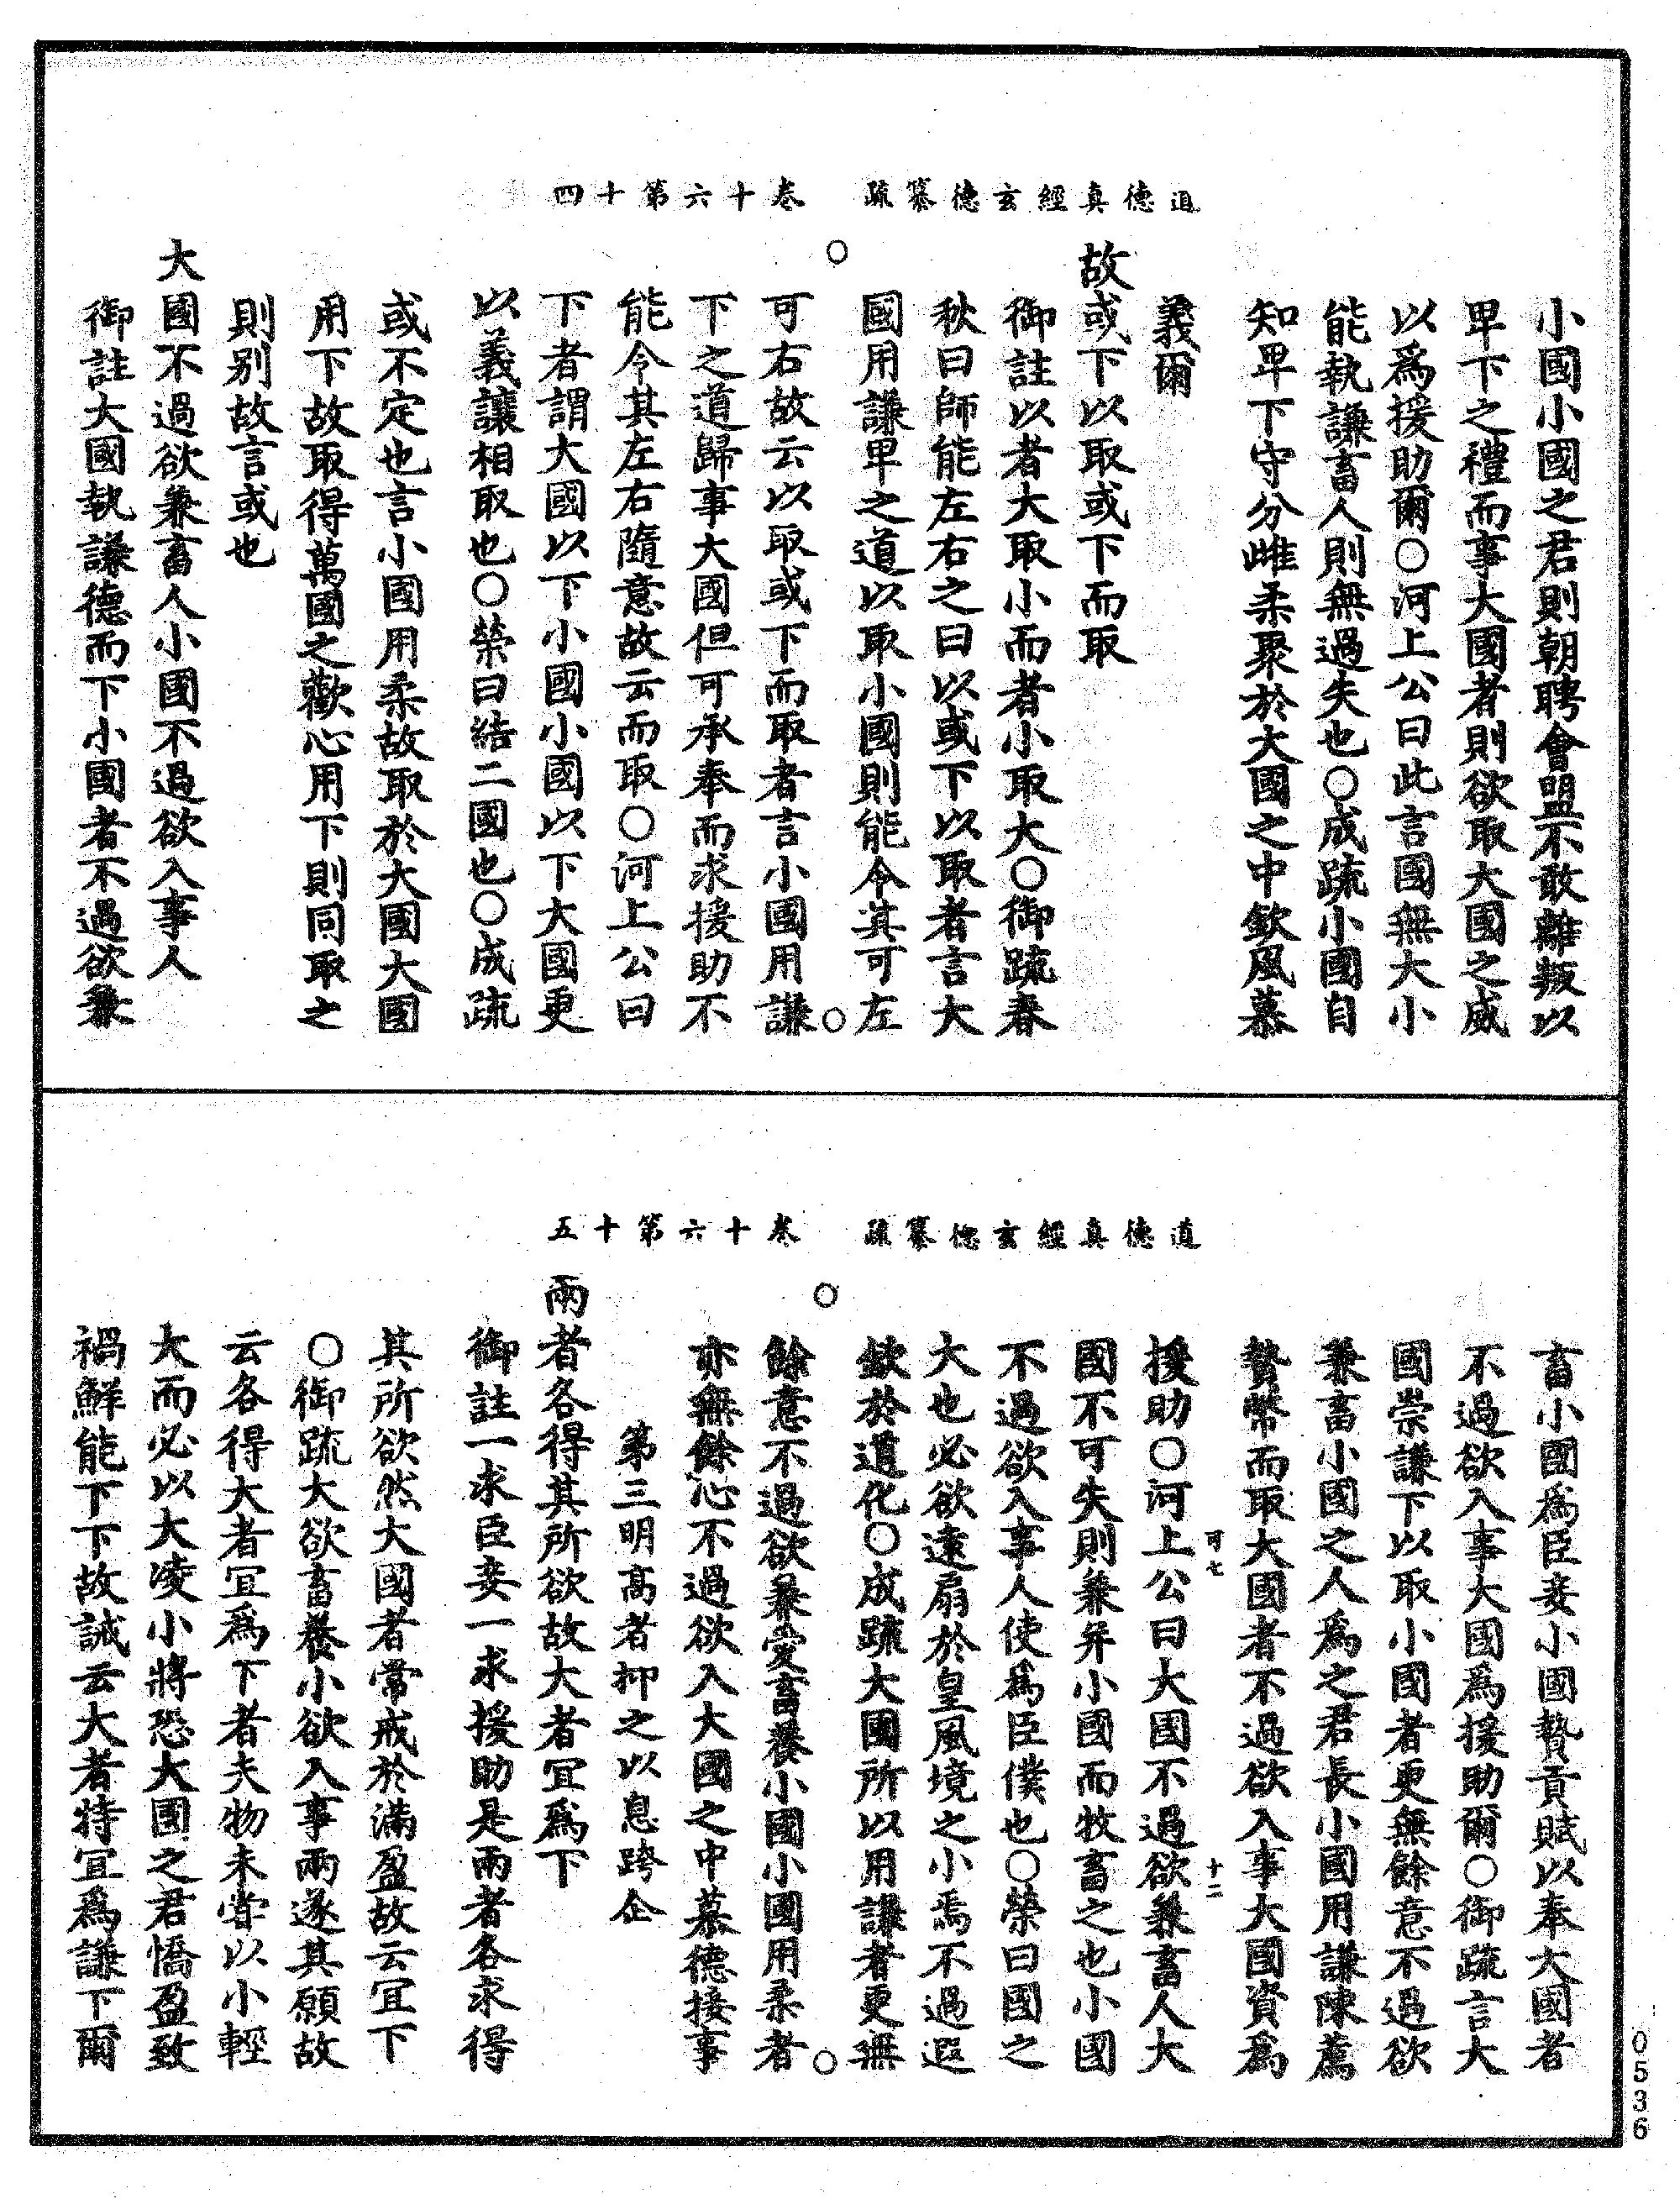 道德真經玄德纂疏　卷十六第十四
小國小國之君則朝聘會盟不敢離叛以
卑下之禮而事大國者則欲取大國之威
以爲援助爾○河上公曰此言國無大小
能執謙畜人則無過失也○成疏小國自
知卑下守分雌柔聚於大國之中欽風慕
義爾
故或下以取或下而取
御註以者大取小而者小取大○御疏春
秋曰師能左右之曰以或下以取者言大
國用謙卑之道以取小國則能令其可左
可右故云以取或下而取者言小國用謙
下之道歸事大國但可承奉而求援助不
能令其左右隨意故云而取○河上公曰
下者謂大國以下小國小國以下大國更
以義讓相取也○榮曰結二國也○成疏
或不定也言小國用柔故取於大國大國
用下故取得萬國之歡心用下則同取之
則别故言或也
大國不過欲兼畜人小國不過欲入事人
御註大國執謙德而下小國者不過欲兼
道德真經玄德纂疏　卷十六第十五
畜小國爲臣妾小國贄貢賦以奉大國者
不過欲入事大國爲援助爾○御疏言大
國崇謙下以取小國者更無餘意不過欲
兼畜小國之人爲之君長小國用謙陳薦
贄幣而取大國者不過欲入事大國資爲
可七　十二
援助○河上公曰大國不過欲兼畜人大
國不可失則兼并小國而牧畜之也小國
不過欲入事人使爲臣僕也○榮曰國之
大也必欲遠扇於皇風境之小焉不過遐
欽於道化○成疏大國所以用謙者更無
餘意不過欲兼愛畜養小國小國用柔者
亦無餘心不過欲入大國之中慕德接事
第三明高者抑之以息跨企
兩者各得其所欲故大者宜爲下
御註一求臣妾一求援助是兩者各求得
其所欲然大國者常戒於滿盈故云宜下
○御疏大欲畜養小欲入事兩遂其願故
云各得大者宜爲下者夫物未嘗以小輕
大而必以大凌小將恐大國之君憍盈致
禍鮮能下下故誡云大者特宜爲謙下爾
0536